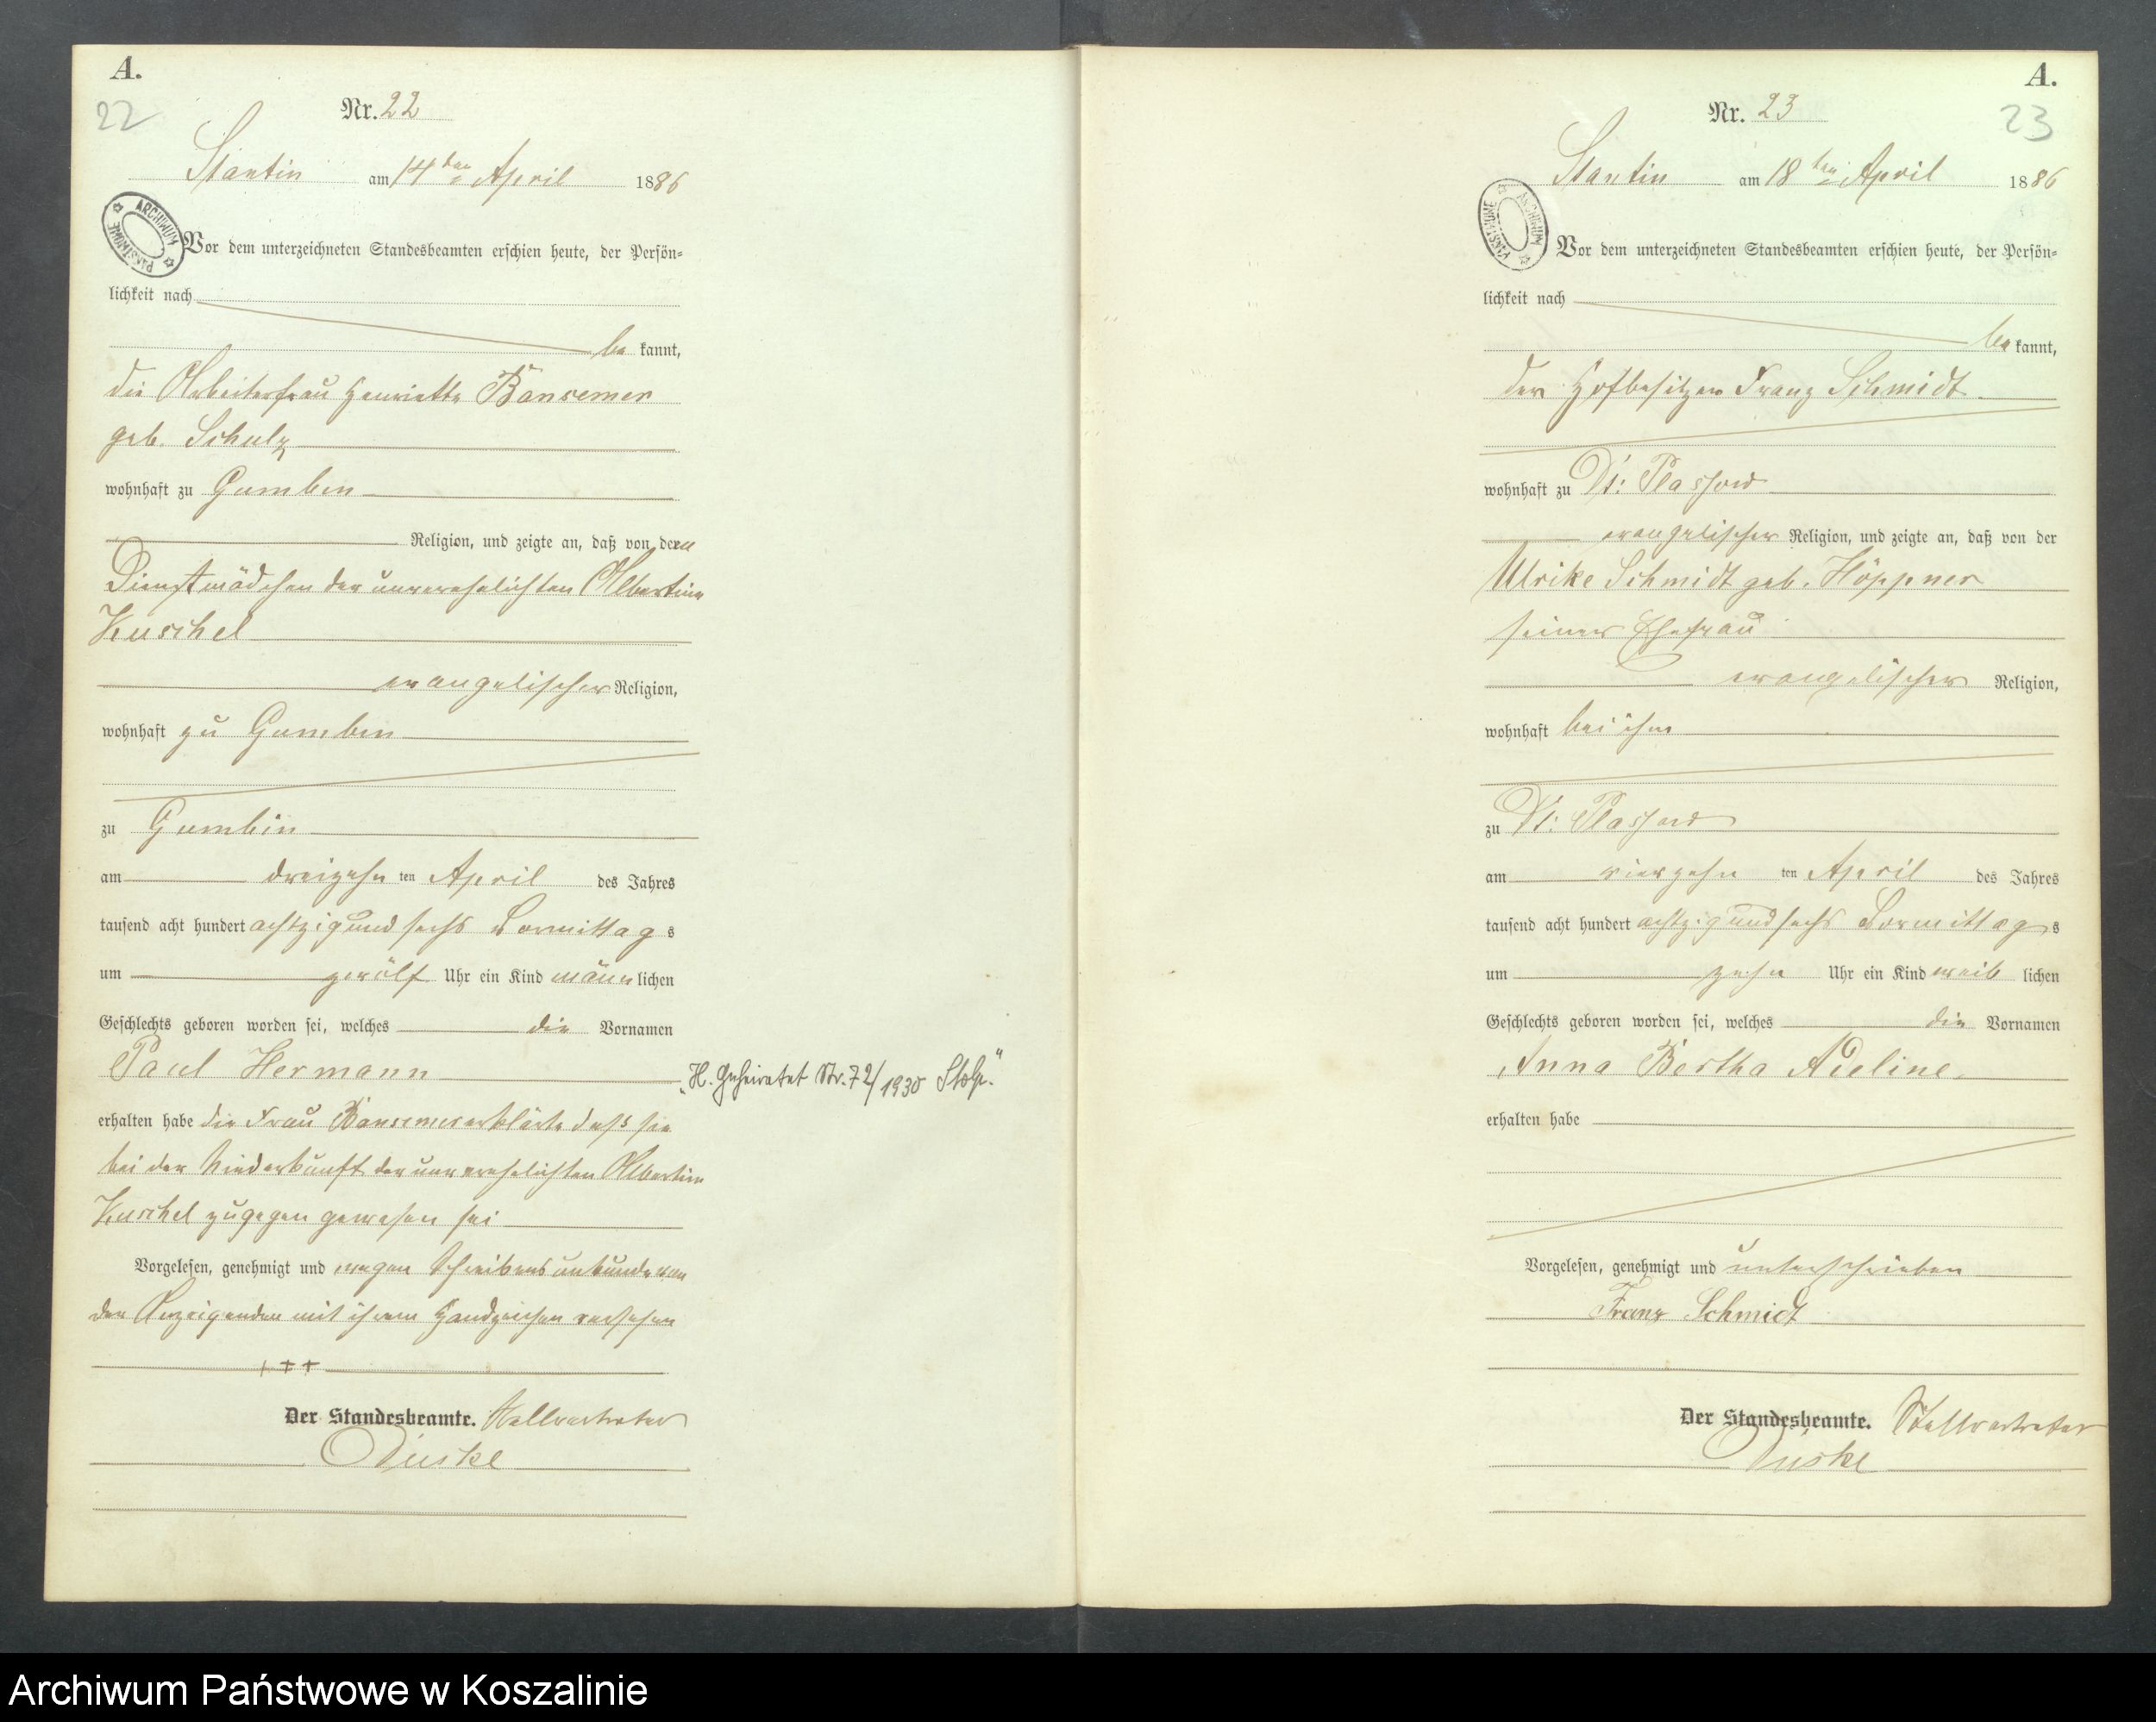 A.
22
Nr. 22
Stantin am 14ten April 1886
ARCHIWUM PAŃSTWOWE
Vor dem unterzeichneten Standesbeamten erschien heute, der Persön-
lichkeit nach
be kannt,
die Arbeiterfrau Henriette Bansemer
geb. Schulz
wohnhaft zu Gumbin
Religion, und zeigte an, daß von dem
Dienstmädchen der unverehelichten Albertine
Kuschel
evangelischer Religion,
wohnhaft zu Gumbin
zu Gumbin
am dreizehn ten April des Jahres
tausend acht hundert achtzig und sechs Vormittag s
um zwölf Uhr ein Kind männ lichen
Geschlechts geboren worden sei, welches die Vornamen
Paul Hermann
„H. Geheiratet Nr. 72/1930 Stolp."
erhalten habe die Frau Bansemer erklärte daß sie
bei der Niederkunft der unverehelichten Albertine
Kuschel zugegen gewesen sei
Vorgelesen, genehmigt und wegen Schreibensunkunde von
der Anzeigenden mit ihrem Handzeichen versehen
+++
Der Standesbeamte. Stellvertreter
A.
23
Nr. 23
Stantin am 18ten April 1886
ARCHIWUM PAŃSTWOWE
Vor dem unterzeichneten Standesbeamten erschien heute, der Persön-
lichkeit nach
be kannt,
der Hofbesitzer Franz Schmidt
wohnhaft zu Dt: Plassow
evangelischer Religion, und zeigte an, daß von der
Ulrike Schmidt geb. Höppner
seiner Ehefrau
evangelischer Religion,
wohnhaft bei ihm
zu Dt: Plassow
am vierzehn ten April des Jahres
tausend acht hundert achtzig und sechs Vormittag s
um zehn Uhr ein Kind weib lichen
Geschlechts geboren worden sei, welches die Vornamen
Anna Bertha Adeline
erhalten habe
Vorgelesen, genehmigt und unterschrieben
Franz Schmidt
Der Standesbeamte. Stellvertreter
Archiwum Państwowe w Koszalinie